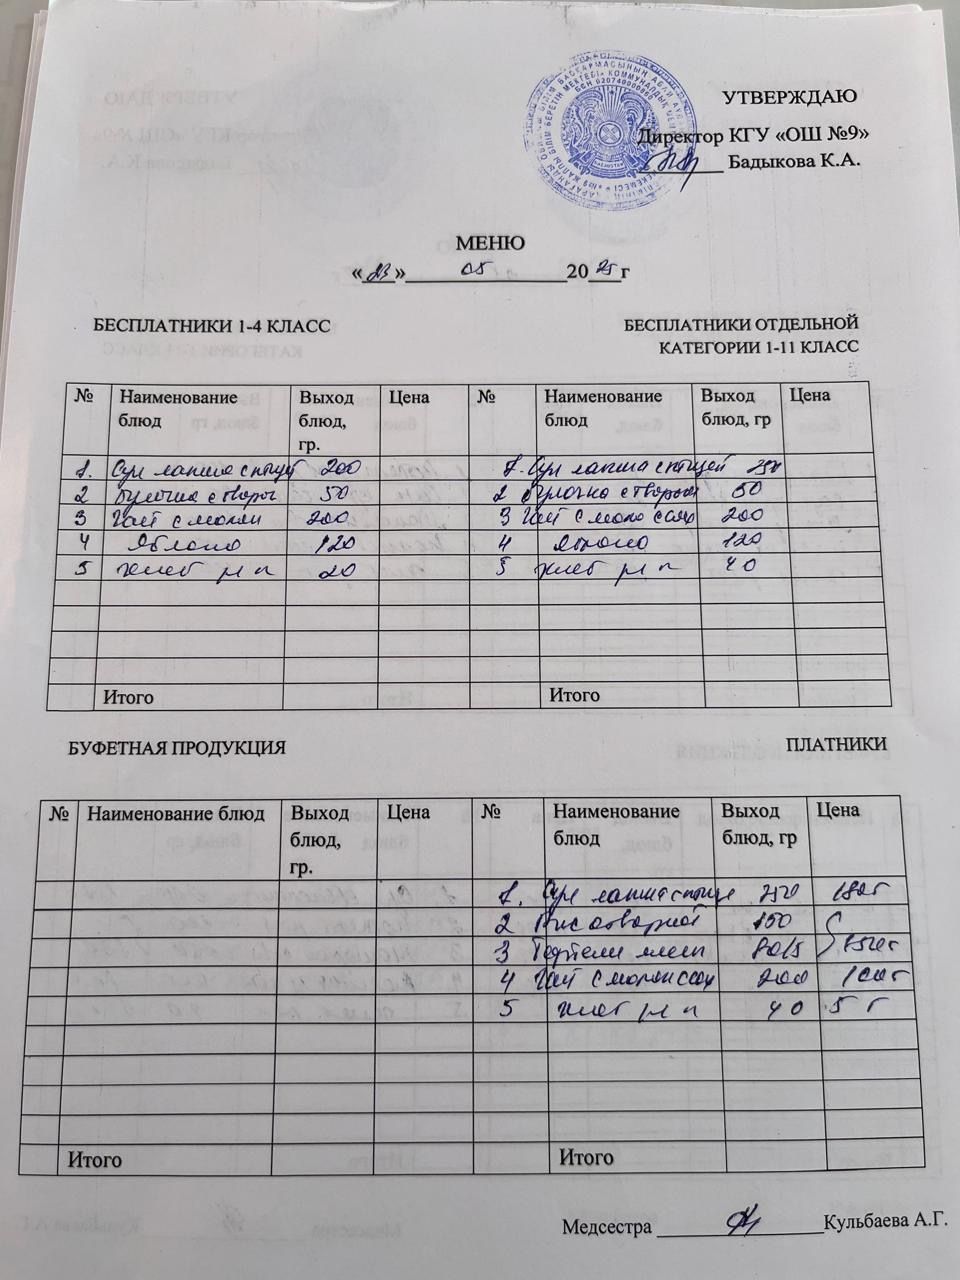 УТВЕРЖДАЮ
Директор КГУ «ОШ №9»
Бадыкова К.А.
МЕНЮ
«23» 05 2025г
БЕСПЛАТНИКИ 1-4 КЛАСС
БЕСПЛАТНИКИ ОТДЕЛЬНОЙ
КАТЕГОРИИ 1-11 КЛАСС
№ Наименование блюд Выход блюд, гр. Цена № Наименование блюд Выход блюд, гр Цена
1. Суп лапша с птицей 200 1. Суп лапша с птицей 250
2 Булочка с творог 50 2 Булочка с творогом 50
3 Чай с молоком 200 3 Чай с молоко 200
4 Яблоко 120 4 Яблоко 120
5 хлеб рж п 20 5 хлеб рж п 40
Итого Итого
БУФЕТНАЯ ПРОДУКЦИЯ
ПЛАТНИКИ
№ Наименование блюд Выход блюд, гр. Цена № Наименование блюд Выход блюд, гр Цена
1. Суп лапша с птице 250
2 Рис отварной 150
3 Тефтели 80/5
4 Чай с молок 200
5 хлеб рж п 40 5 т
Итого Итого
Медсестра Кульбаева А.Г.